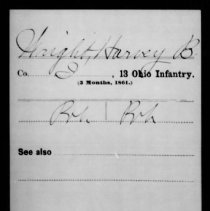 Wright, Harvey B
Co. , 13 Ohio Infantry.
(3 Months, 1861.)
Pvt. Pvt
See also